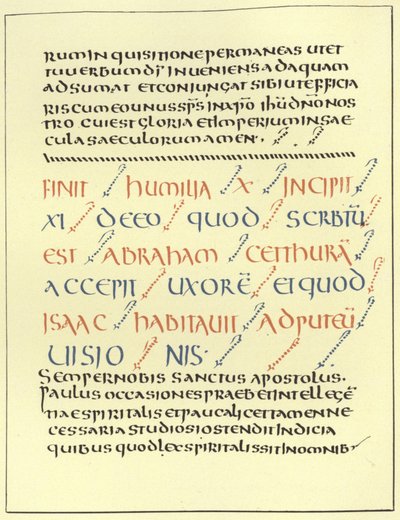 rum inquisitione permaneas ut et
tu uerbum dī inueniens ad aquam
adsumat et coniungat sibi ut efficia
ris cum eo unus sp̄s in xp̄o ih̄u dn̄o nos
tro cui est gloria et imperium in sae
cula saeculorum amen.
FINIT humilia X INCIPIT
XI DEEO quod SCRBTŪ
EST ABRAHAM CETTHURĀ
ACCEPIT UXORĒ et quod
ISAAC habitauit AD PUTEŪ
UISIONIS.
Semper nobis sanctus apostolus.
Paulus occasiones praebet intellegē
tiae spiritalis et pauca licet tamen ne
cessaria studiosis ostendit indicia
quibus quod lex spiritalis sit in omnib